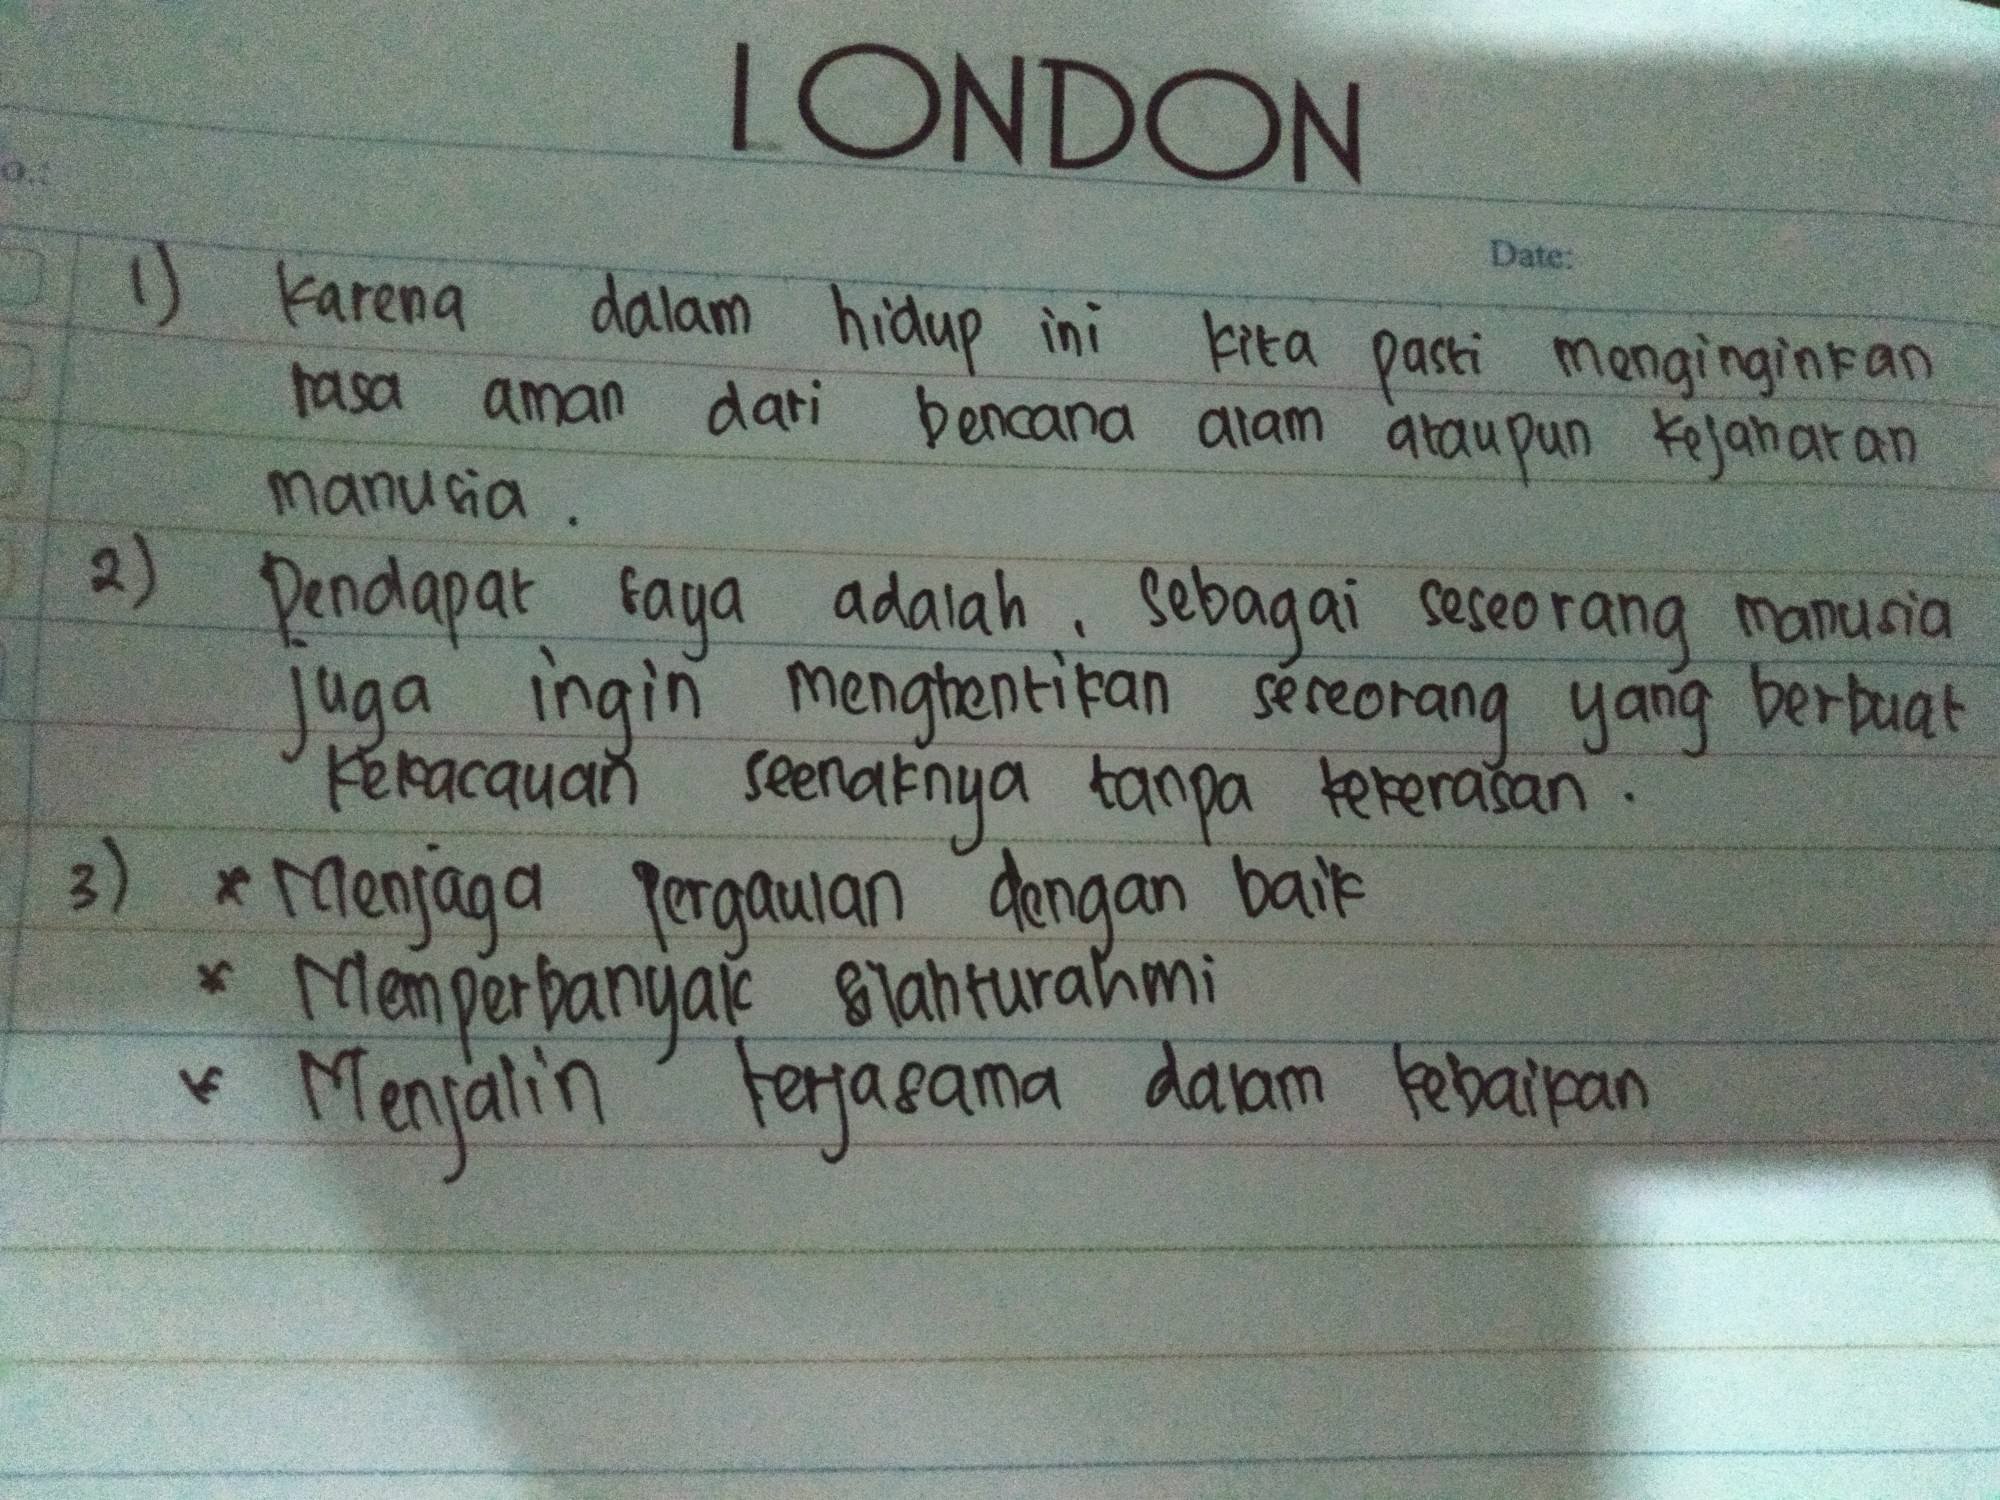 LONDON
o.:
Date:
1) Karena dalam hidup ini kita pasti menginginkan
rasa aman dari bencana alam ataupun kejahatan
manusia.
2) Pendapat saya adalah, sebagai seseorang manusia
juga ingin menghentikan seseorang yang berbuat
kekacauan seenaknya tanpa kekerasan.
3) * Menjaga pergaulan dengan baik
* Memperbanyak silahturahmi
* Menjalin kerjasama dalam kebaikan